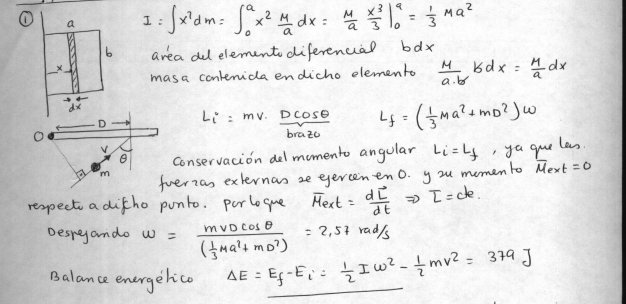 ① a b x dx I = ∫x²dm = ∫₀ᵃ x² M/a dx = M/a x³/3 |₀ᵃ = 1/3 Ma²
área del elemento diferencial bdx
masa contenida en dicho elemento M/(a·b) b dx = M/a dx
O D v θ m Li = mv. Dcosθ Lf = (1/3 Ma² + mD²)ω
brazo
Conservación del momento angular Li = Lf , ya que las
fuerzas externas se ejercen en O. y su momento M̄ext = 0
respecto a dicho punto. Por lo que M̄ext = dL̄/dt ⇒ L̄ = cte.
Despejando ω = mvDcosθ/(1/3 Ma² + mD²) = 2,57 rad/s
Balance energético ΔE = Ef - Ei = 1/2 Iω² - 1/2 mv² = 379 J